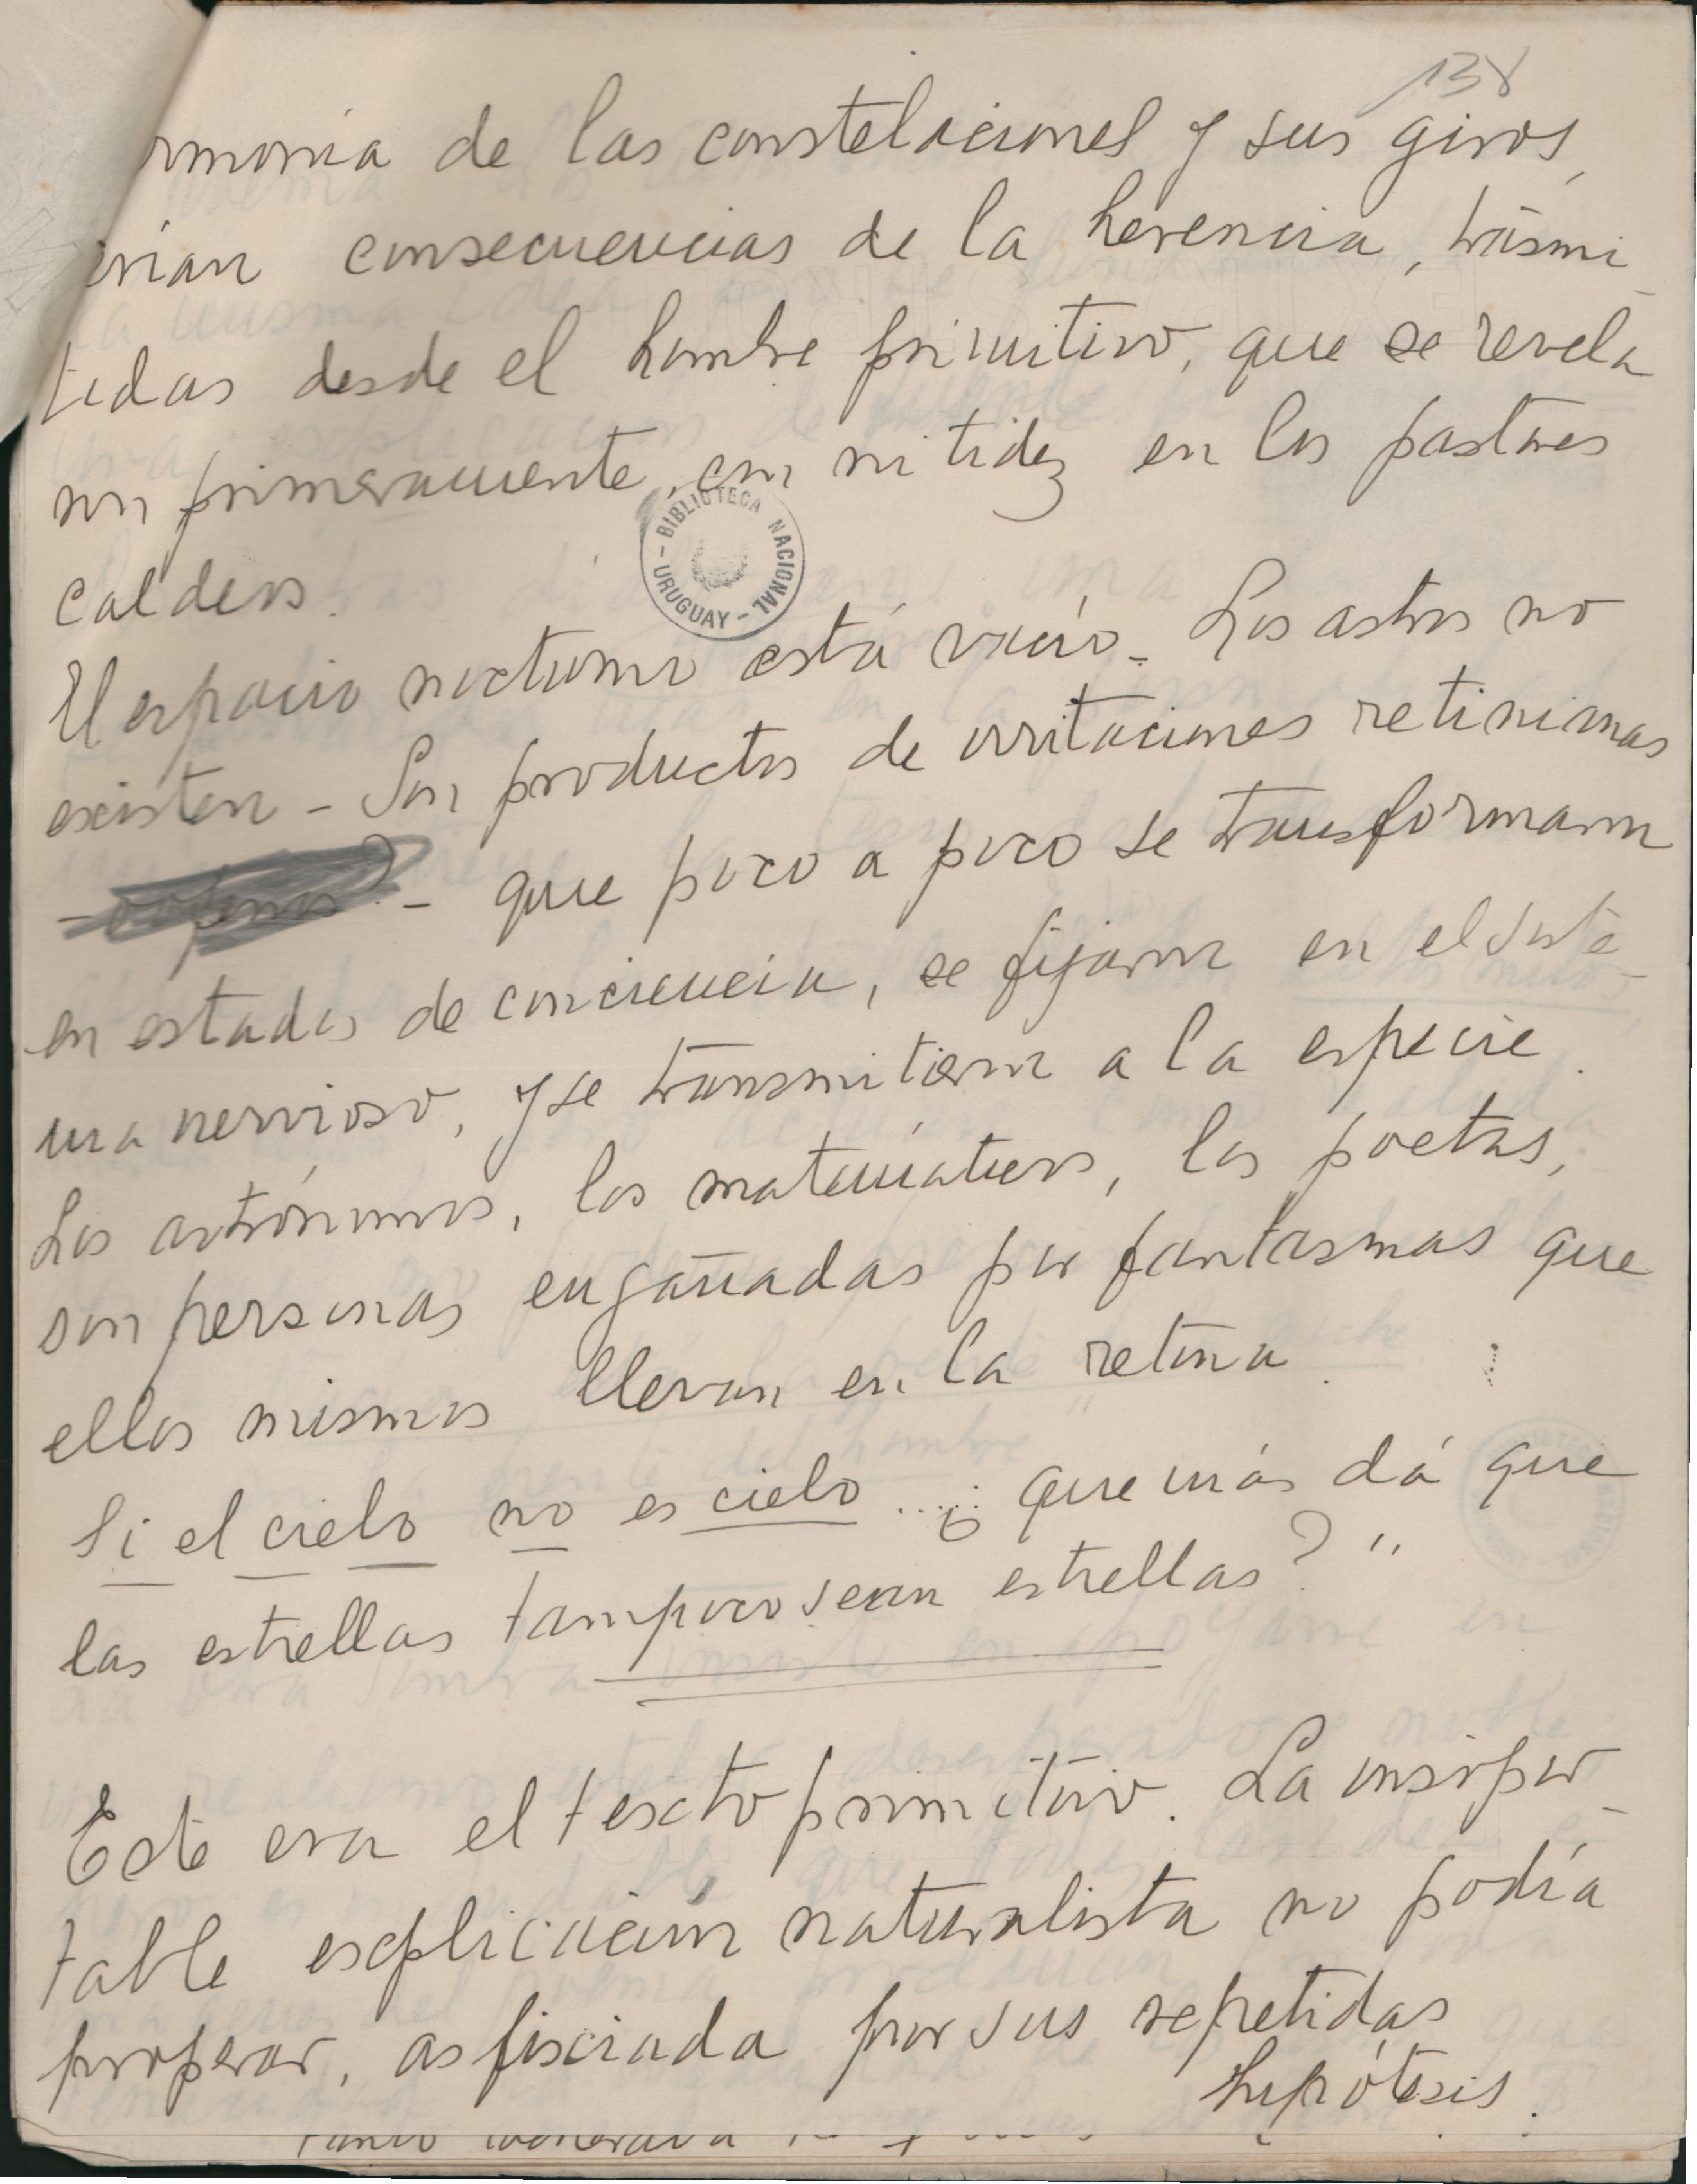 138
rmonía de las constelaciones y sus giros,
erían consecuencias de la herencia, trasmi-
tidas desde el hombre primitivo, que se revela
ron primeramente, con nitidez en los pastores
caldeos.
BIBLIOTECA NACIONAL - URUGUAY -
El espacio nocturno está vacío - Los astros no
existen - Son productos de irritaciones retinianas
- que poco a poco se transformaron
en estados de conciencia, se fijaron en el siste-
ma nervioso, y se transmitieron a la especie.
Los astrónomos, los matemáticos, los poetas,
son personas engañadas por fantasmas que
ellos mismos llevan en la retina.
Si el cielo no es cielo ...¿ que más dá que
las estrellas tampoco sean estrellas? "
Este era el texto primitivo. La insopor-
table explicación naturalista no podía
prosperar, asfisciada por sus repetidas
hipótesis.